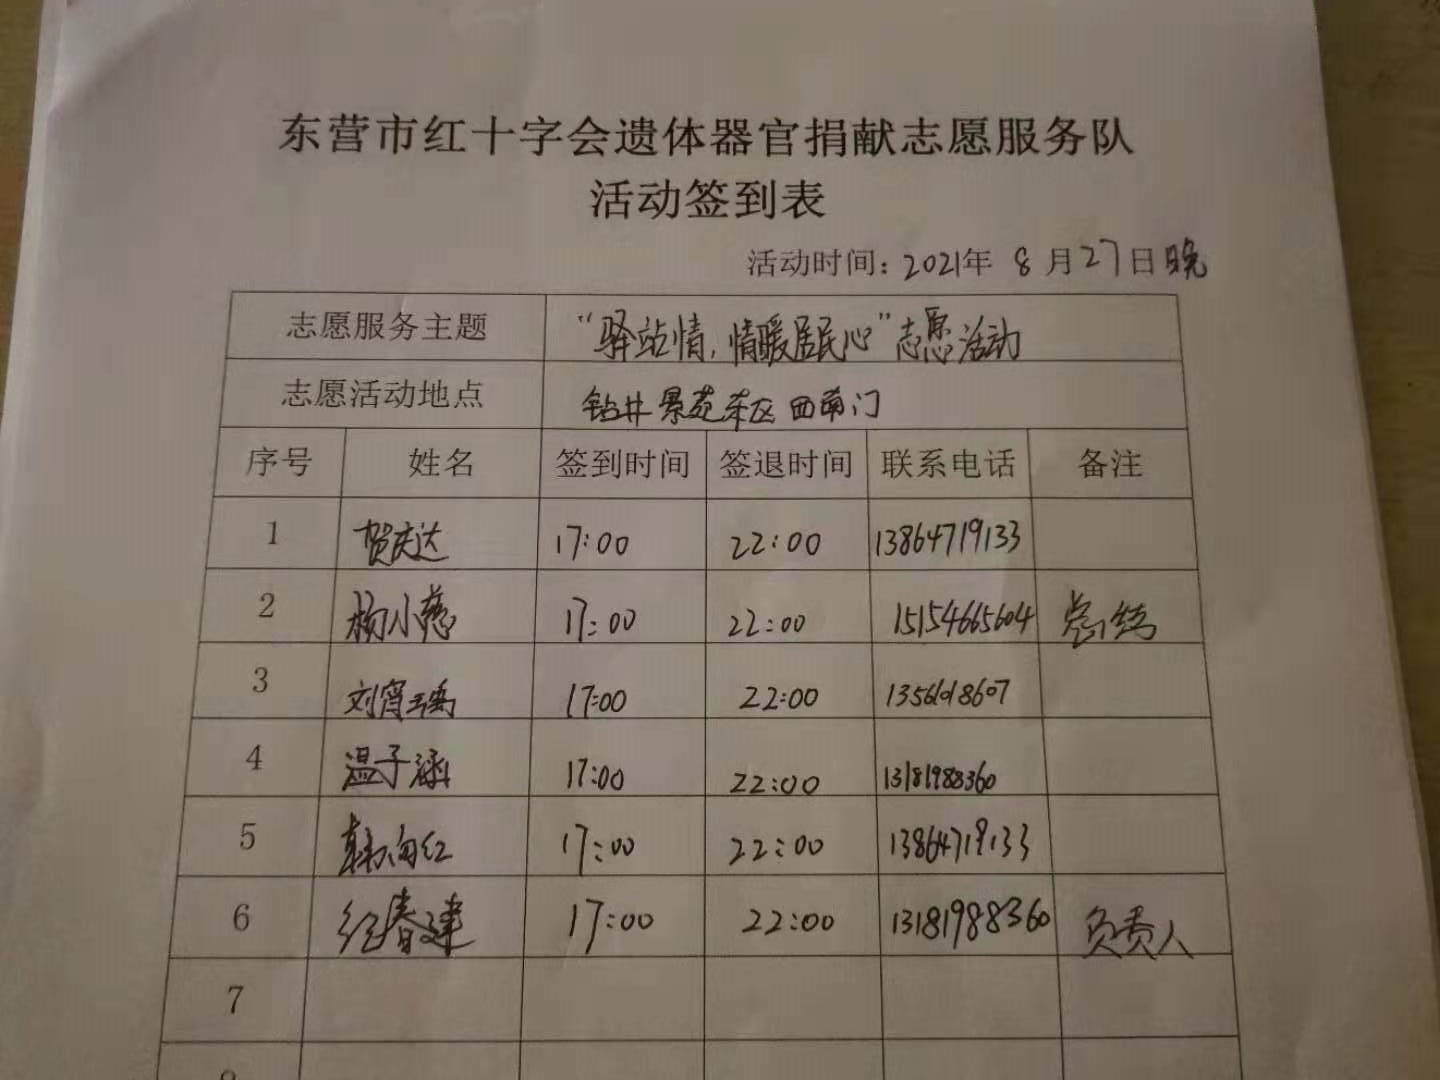 东营市红十字会遗体器官捐献志愿服务队
活动签到表
活动时间：2021年 8 月27日晚
志愿服务主题 “驿站情，情暖居民心”志愿活动
志愿活动地点 钻井景苑东区西南门
序号 姓名 签到时间 签退时间 联系电话 备注
1 贺庆达 17:00 22:00 13864719133
2 杨小慈 17:00 22:00 15154665604 总结
3 刘宵瑀 17:00 22:00
4 温子涵 17:00 22:00 13181988360
5 韩向红 17:00 22:00 13864719133
6 纪春建 17:00 22:00 13181988360 负责人
7